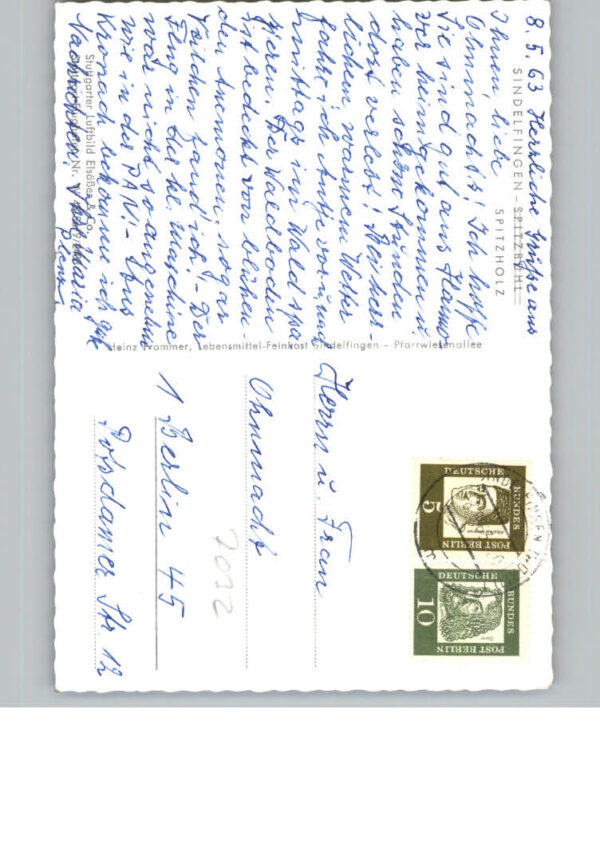 SINDELFINGEN – SPITZBÜHL
SPITZHOLZ
8.5.63 Herrliche Grüße aus
Ihnen liebe
Ohnmacht's! Ich hoffe
Sie sind gut aus Hamm
vor heimgekommen u.
haben schöne Stunden
dort verlebt! Bei herr-
lichem warmem Wetter
fahre ich
mittags im Wald spa
zieren. Der Waldboden
ist bedeckt von blühen-
den Anemonen, sogar
Veilchen fand ich! - Der
Flug in der
war nicht so angenehm
wie in der PAN! - Aus
Kronach bekomme ich gute
Nachrichten!
Maria
Stuttgarter Luftbild Elsäßer & Co.
Heinz Frommer, Lebensmittel-Feinkost Sindelfingen - Pfarrwiesenallee
Herrn u. Frau
Ohnmacht
1 Berlin 45
Potsdamer Str 12
7032
DEUTSCHE
BUNDES
POST BERLIN
5
DEUTSCHE
BUNDES
POST BERLIN
10